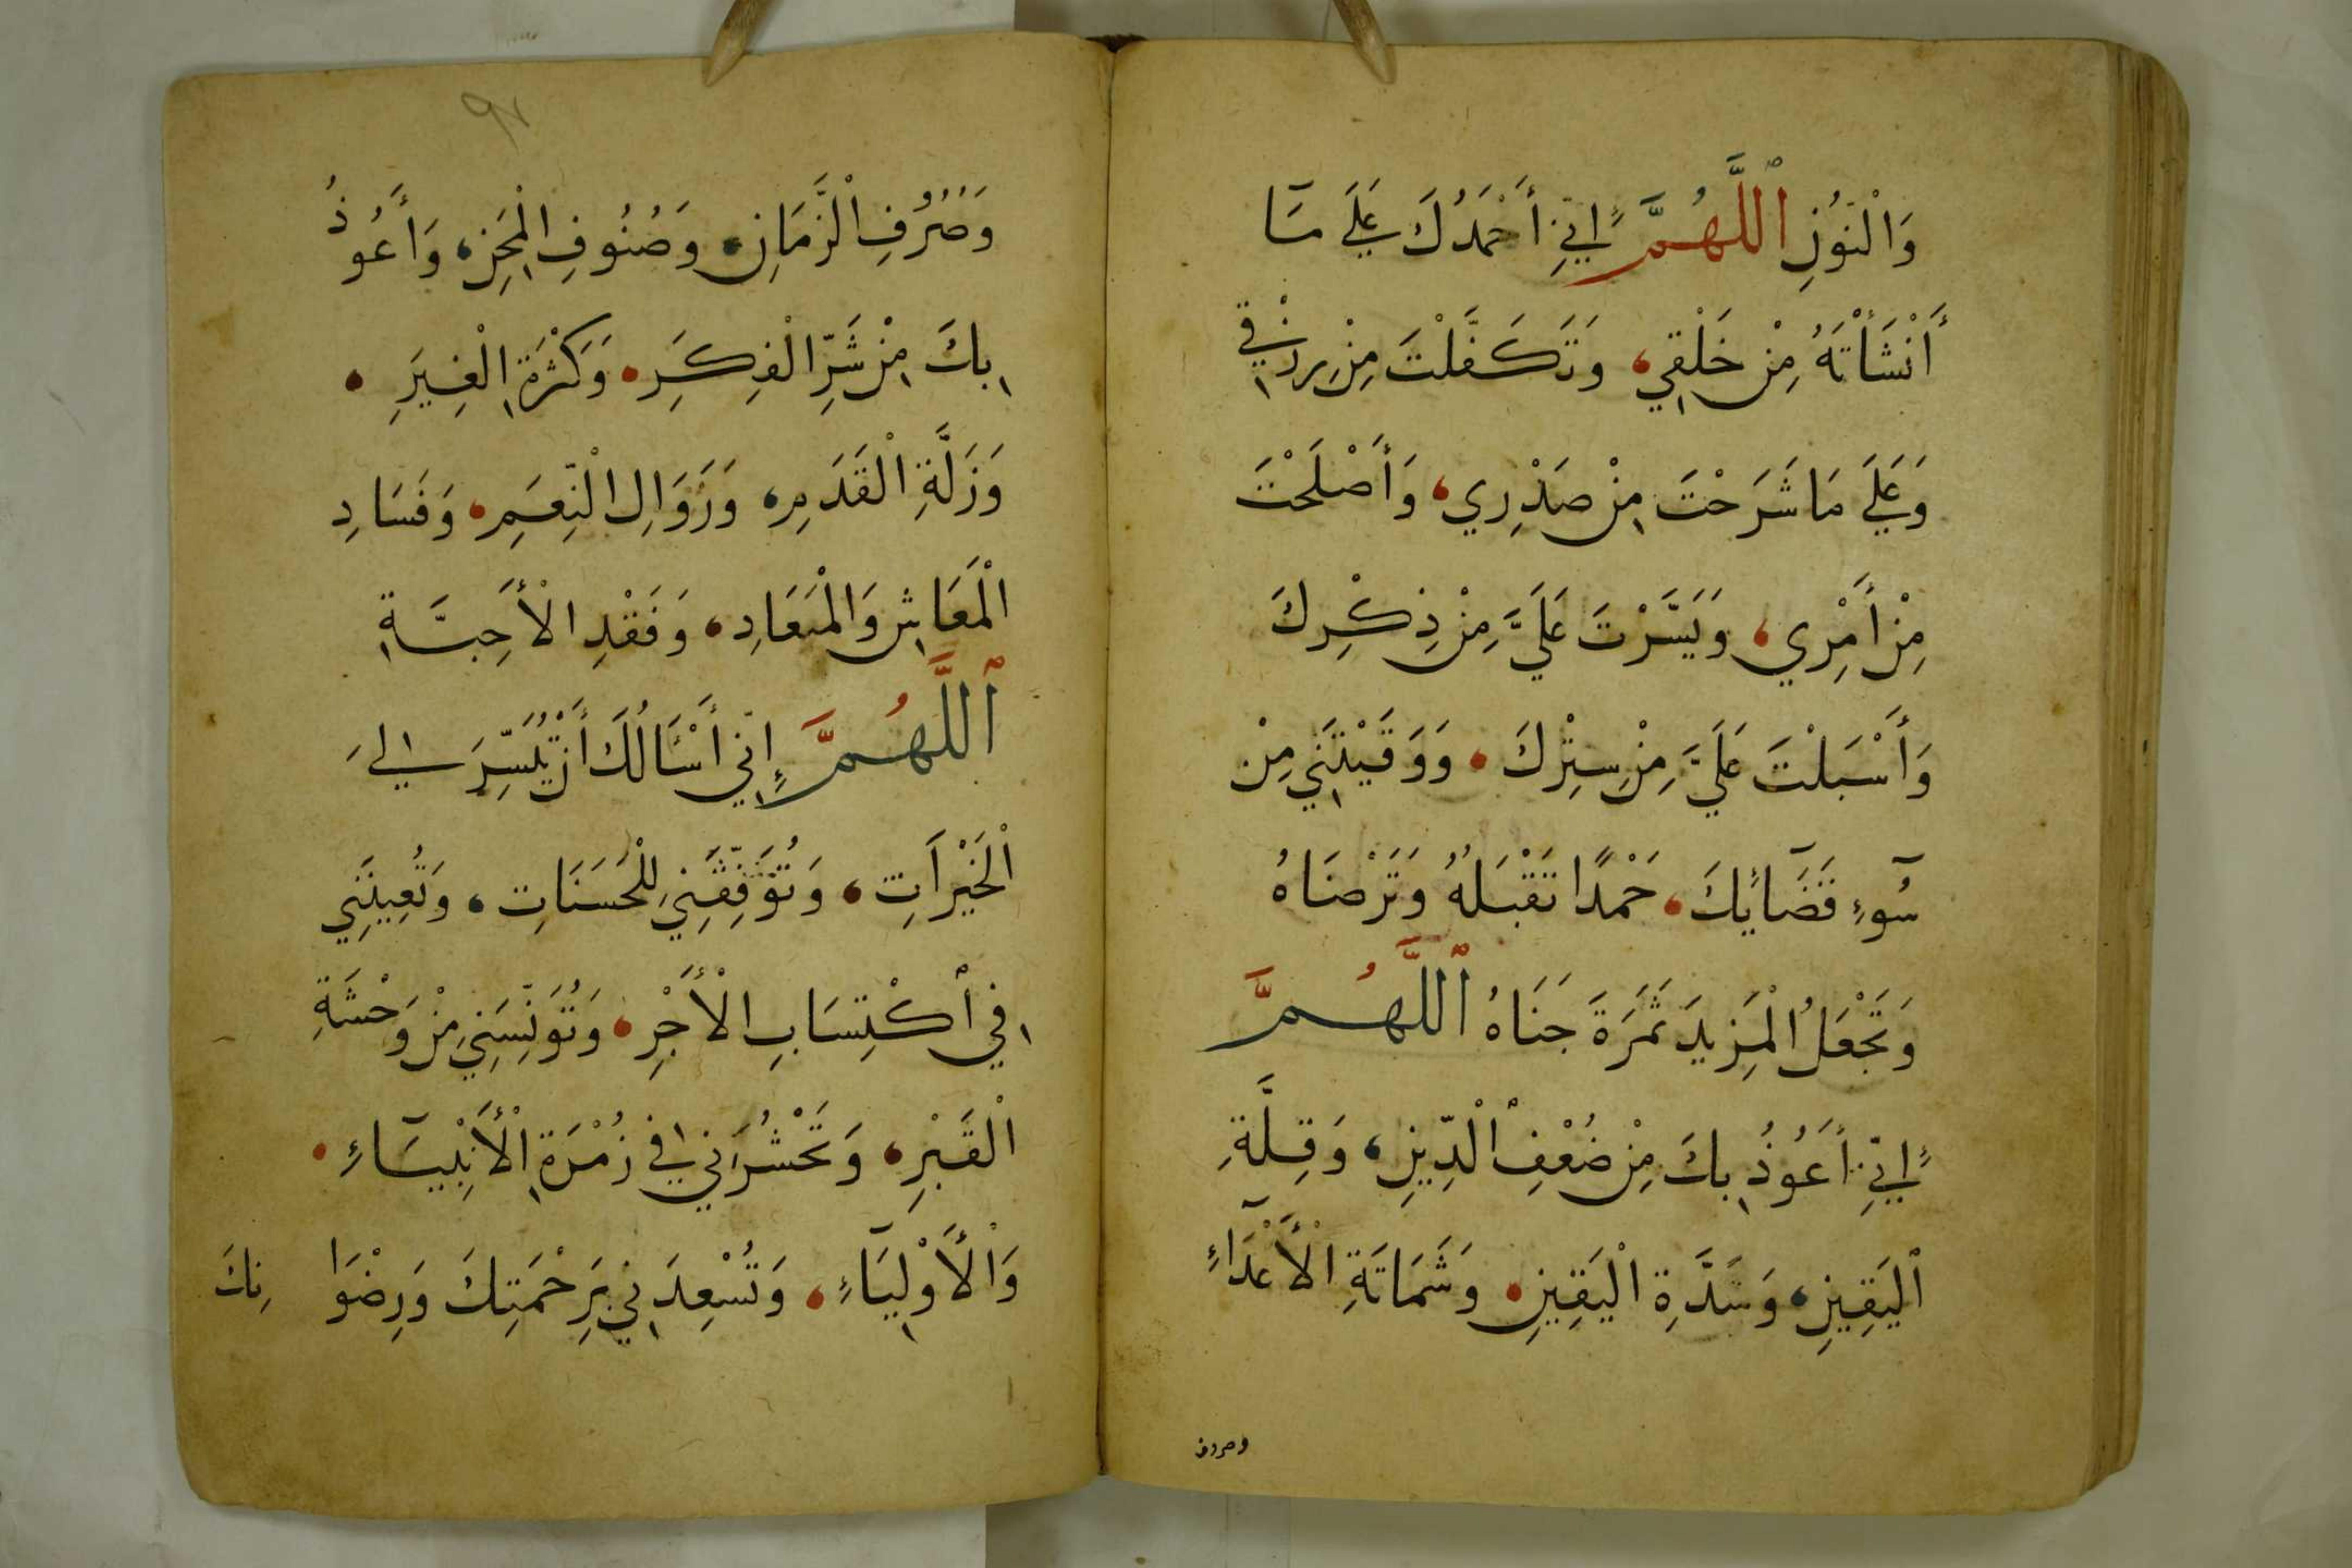 وَالْنُوْنِ اللَّهُمَّ إِنِّي أَحْمَدُكَ عَلَى مَا
أَنْشَأْتَهُ مِنْ خَلْقِي، وَتَكَفَّلْتَ مِنْ رِزْقِي
وَعَلَى مَا شَرَحْتَ مِنْ صَدْرِي، وَأَصْلَحْتَ
مِنْ أَمْرِي، وَيَسَّرْتَ عَلَيَّ مِنْ ذِكْرِكَ
وَأَسْبَلْتَ عَلَيَّ مِنْ سِتْرِكَ، وَوَقَيْتَنِي مِنْ
سُوءِ قَضَائِكَ، حَمْدًا تَقْبَلُهُ وَتَرْضَاهُ
وَتَجْعَلُ الْمَزِيدَ ثَمَرَةَ جَنَاهُ اللَّهُمَّ
إِنِّي أَعُوذُ بِكَ مِنْ ضُعْفِ الْدِّينِ، وَقِلَّةِ
الْيَقِينِ، وَشَدَّةِ الْيَقِينِ، وَشَمَاتَةِ الْأَعْدَاءِ
وصروف
٩٧
وَصُرُفِ الْزَّمَانِ، وَصُنُوفِ الْمِحَنِ، وَأَعُوذُ
بِكَ مِنْ شَرِّ الْفِكَرِ، وَكَثْرَةِ الْغِيَرِ،
وَزَلَّةِ الْقَدَمِ، وَزَوَالِ الْنِّعَمِ، وَفَسَادِ
الْمَعَاشِ وَالْمَعَادِ، وَفَقْدِ الْأَحِبَّةِ
اللَّهُمَّ إِنِّي أَسْئَالُكَ أَنْ تُيَسِّرَ إِلَى
الْخَيْرَاتِ، وَتُوَفِّقَنِي لِلْحَسَنَاتِ، وَتُعِينَنِي
فِي اكْتِسَابِ الْأَجْرِ، وَتُوَنِّسَنِي مِنْ وَحْشَةِ
الْقَبْرِ، وَتَحْشُرَنِي فِي زُمْرَةِ الْأَنْبِيَاءِ،
وَالْأَوْلِيَاءِ، وَتُسْعِدَنِي بِرَحْمَتِكَ وَرِضْوَا نِكَ